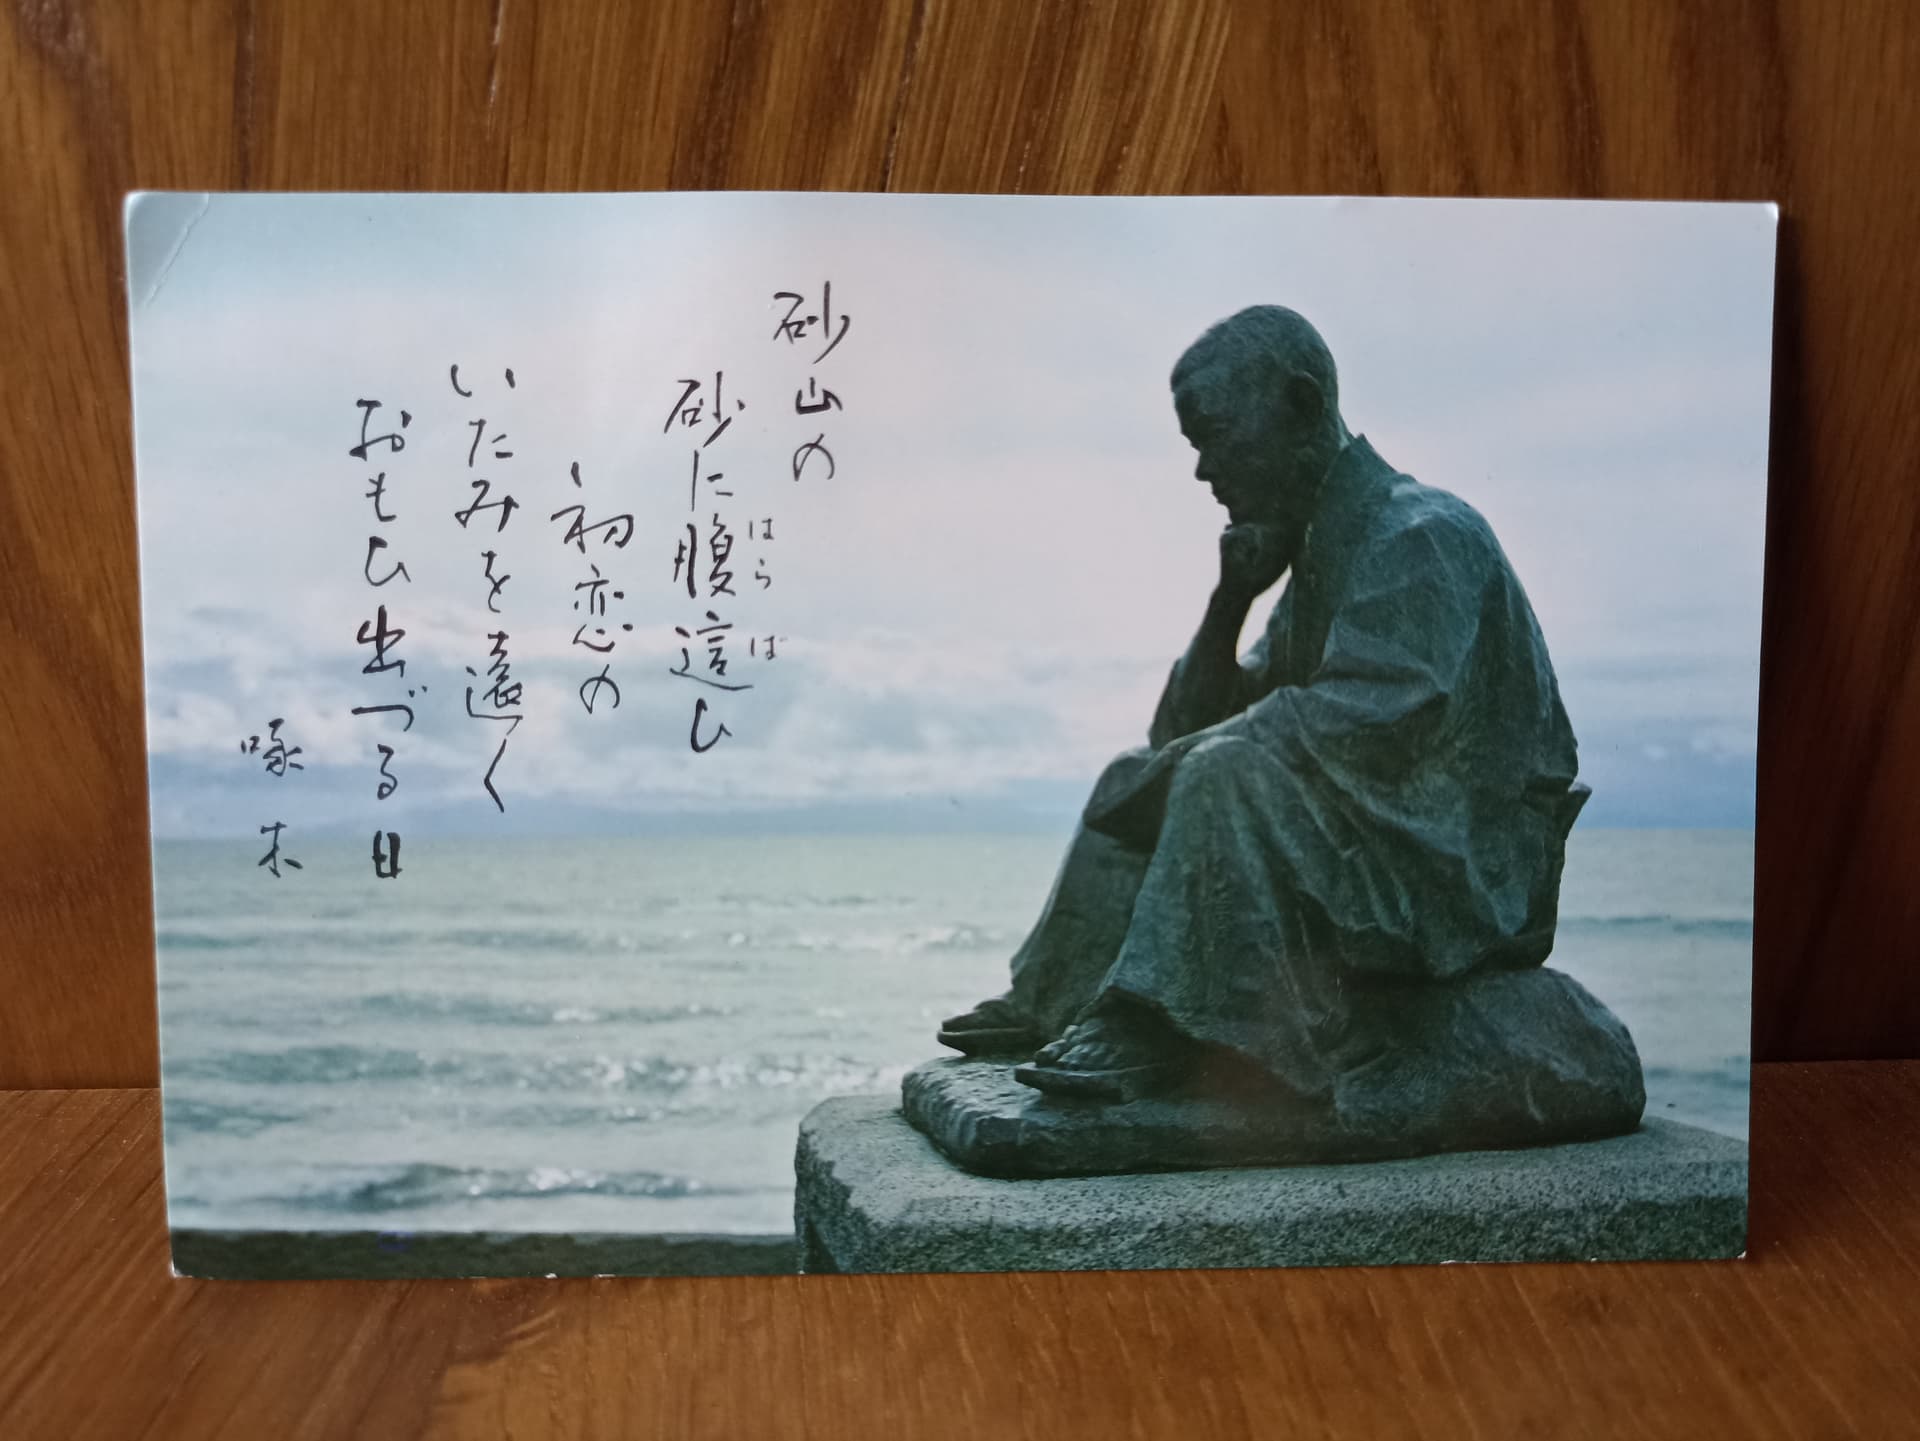 砂山の
砂に腹這ひ
はらば
初恋の
いたみを遠く
おもひ出づる日
啄木